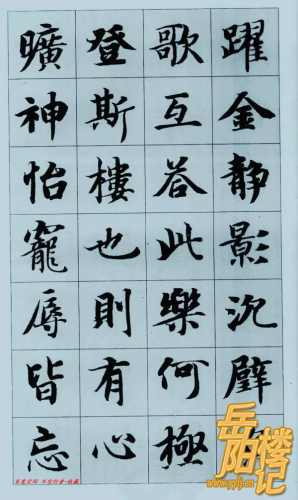 躍金静影沉璧
歌互答此樂何極
登斯樓也則有心
曠神怡寵辱皆忘
岳阳楼记